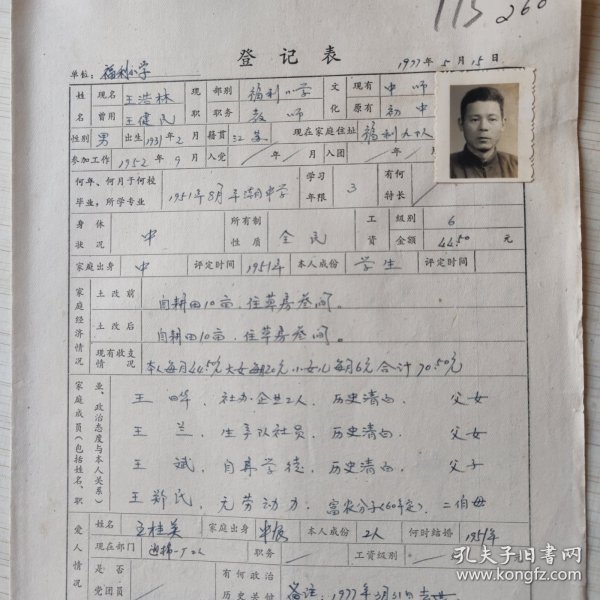 115 260
登记表
单位：福利小学 1977年5月15日
姓名 现名 王浩林 现职 部别 福利小学 文化 现有 中师
曾用 王健民 职务 教师 原有 初中
性别 男 出生 1931年2月 籍贯 江苏 现在家庭住址 福利九下人
参加工作 1952年9月 入党 年 月 入团 年 月
何年、何月于何校毕业，所学专业 1951年8月 中学 学习年限 3 有何特长
身体状况 中 所有制性质 全民 工资 级别 6 金额 44.50元
家庭出身 中 评定时间 1951年 本人成份 学生 评定时间
家庭经济情况 土改前 自耕田10亩，住草房叁间。
土改后 自耕田10亩，住草房叁间。
现有收支情况 本人每月44.50元大女每月20元小女儿每月6元合计70.50元
家庭成员（包括姓名、职业、政治态度与本人关系）
王晔，社办企业工人，历史清白，父女
王兰，生产队社员，历史清白，父女
王斌，自 学徒，历史清白，父子
王郑氏，无劳动力，富农分子(60年定)，二伯母
爱人情况 姓名 王桂英 家庭出身 中农 本人成份 工人 何时结婚 1951年
现在部门 厂工人 职务 工资级别
是否党团员 有何政治历史关 备注：1977年3月31日
孔夫子旧书网
www.kongfz.com